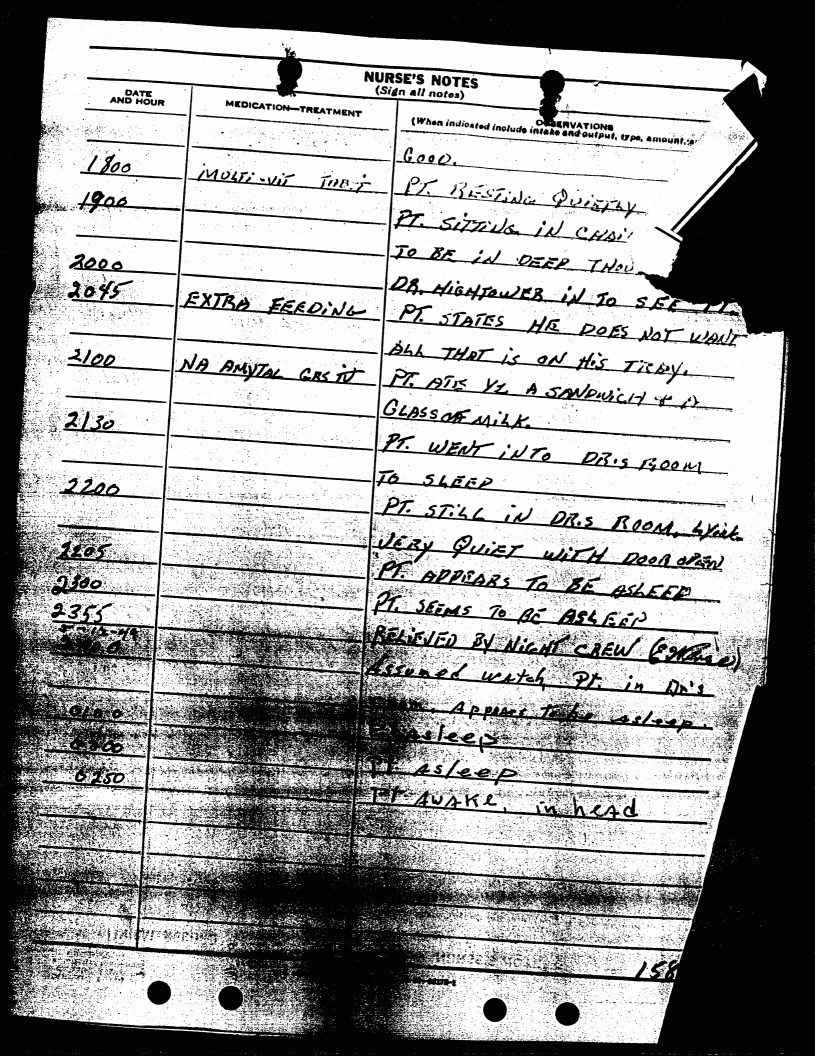 NURSE'S NOTES
(Sign all notes)
DATE AND HOUR
MEDICATION—TREATMENT
OBSERVATIONS
(When indicated include intake and output, type, amount,
GOOD.
1800 MULTI-VIT TAB T PT. RESTING QUIETLY
1900 PT. SITTING IN
TO BE IN DEEP
2000 DR. HIGHTOWER IN TO SEE PT.
2045 EXTRA FEEDING PT. STATES HE DOES NOT WANT
ALL THAT IS ON HIS TRAY.
2100 NA AMYTAL GRS PT. ATE 1/2 A SANDWICH & A
GLASS OF MILK.
2130 PT. WENT INTO DR.S ROOM
TO SLEEP
2200 PT. STILL IN DR.S ROOM,
VERY QUIET WITH DOOR OPEN
2205 PT. APPEARS TO BE ASLEEP
2300 PT. SEEMS TO BE ASLEEP
2355 RELIEVED BY NIGHT CREW
Assumed watch, Pt. in Dr's
room. Appears to be asleep.
Pt asleep
Pt asleep
Pt AWAKE, in head
158